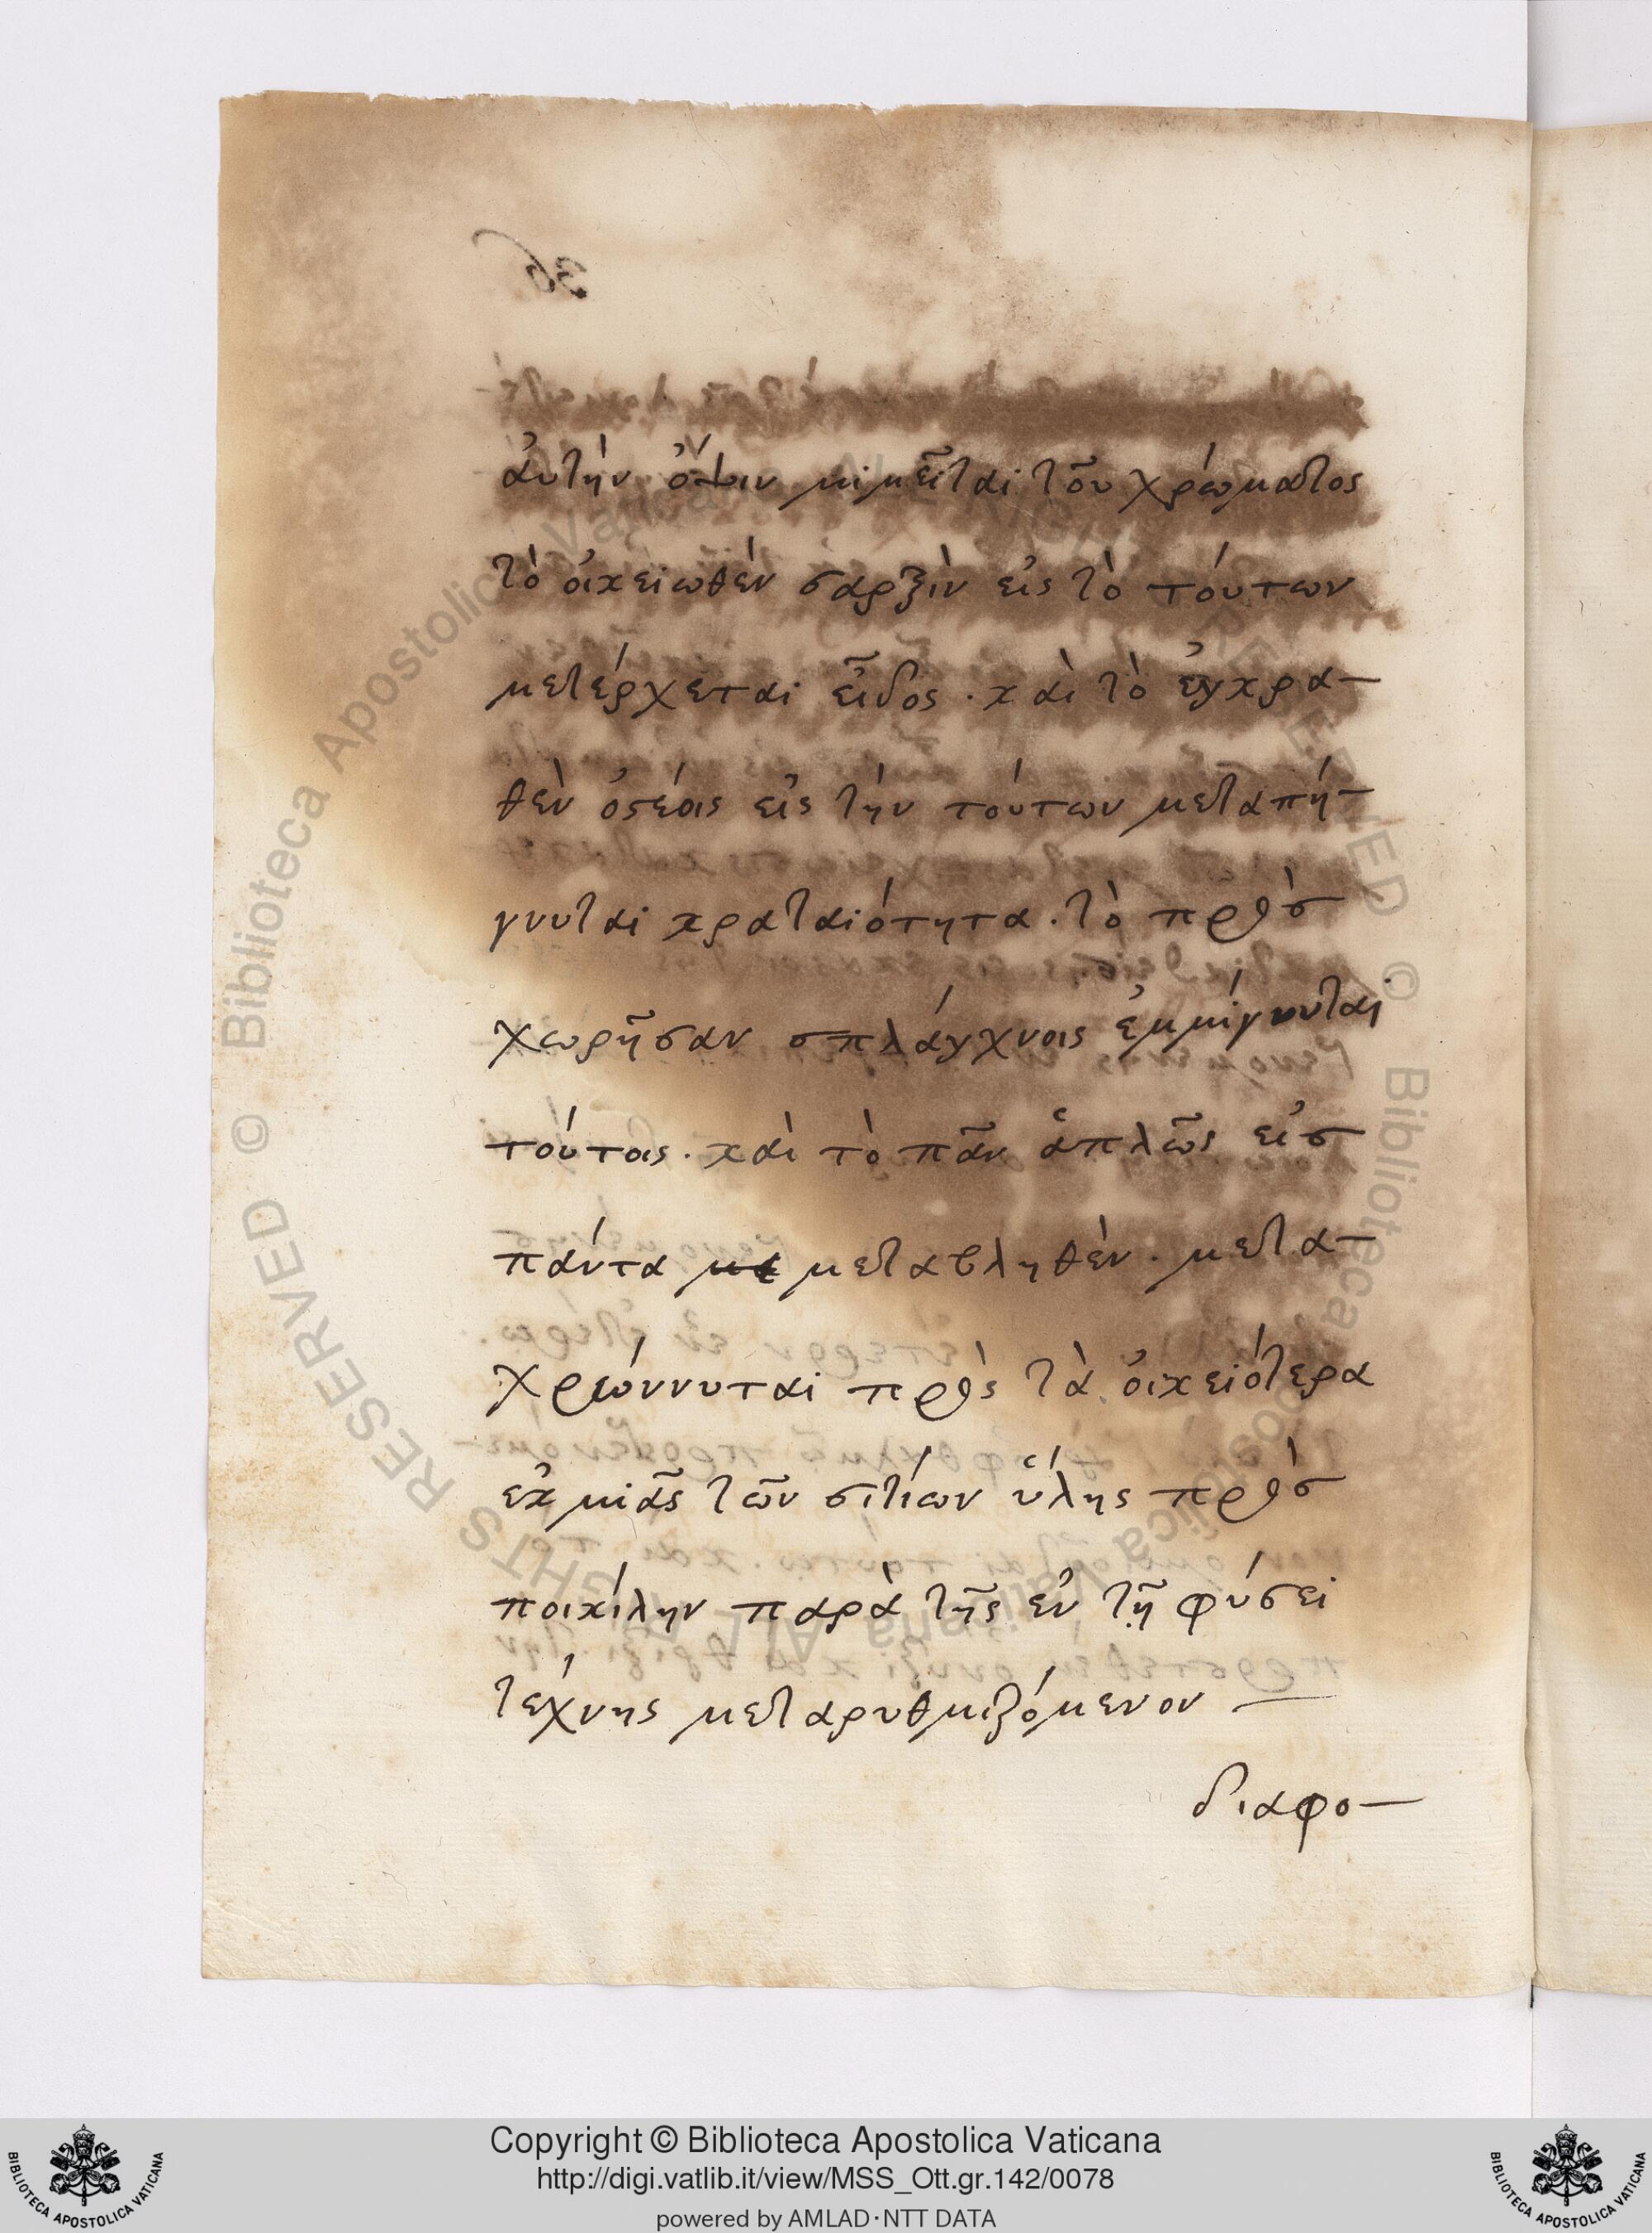 36
ἀυτὴν ὄψιν μιμεῖται τοῦ χρώματος
τὸ ὀικειωθὲν σαρξὶν εἰς τὸ τόυτων
μετέρχεται εἶδος · κὰι τὸ ἐγκρα-
θὲν ὀστέοις εἰς τὴν τόυτων μεταπή-
γνυται κραταιότητα · τὸ πρὸσ
χωρῆσαν σπλάγχνοις ἐμμίγνυται
τόυτοις · κὰι τὸ πᾶν ἁπλῶς εἰσ
πάντα μεταβληθὲν · μετα-
χρώννυται πρὸς τὰ ὀικειότερα
ἐκ μιᾶς τῶν σιτίων ὕλης πρὸσ
ποικίλην παρὰ τῆς ἐν τῇ φύσει
τέχνης μεταρυθμιζόμενον —
διαφο-
Copyright © Biblioteca Apostolica Vaticana
http://digi.vatlib.it/view/MSS_Ott.gr.142/0078
powered by AMLAD·NTT DATA
BIBLIOTECA APOSTOLICA VATICANA
BIBLIOTECA APOSTOLICA VATICANA